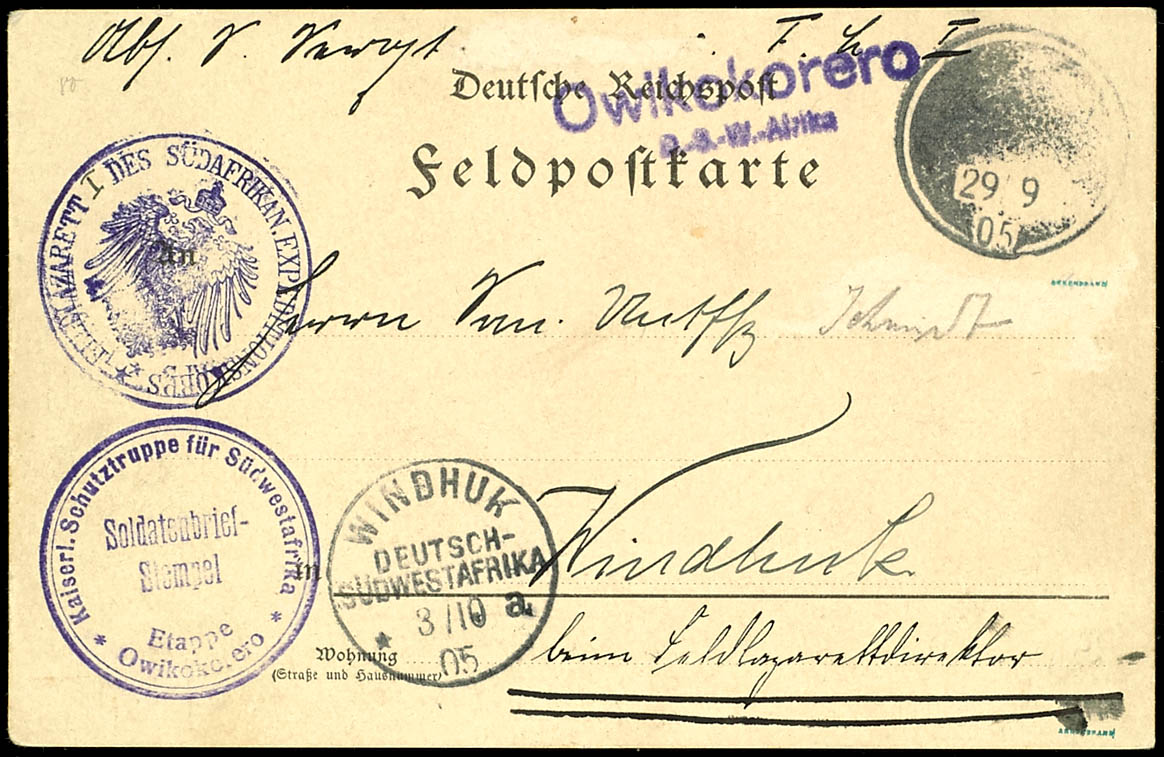 Abs. V.
Deutsche Reichspost
Owikokorero
D.-S.-W.-Afrika
Feldpostkarte
29 9
05
FELDLAZARETT I DES SÜDAFRIKAN. EXPEDITIONSKORPS
An
Herrn San. Schmidt
Kaiserl. Schutztruppe für Südwestafrika
Soldatenbrief-
Stempel
Etappe
Owikokorero
WINDHUK
DEUTSCH-
SÜDWESTAFRIKA
3/10 a.
05
in Windhuk
Wohnung
(Straße und Hausnummer)
beim Feldlazarettdirektor